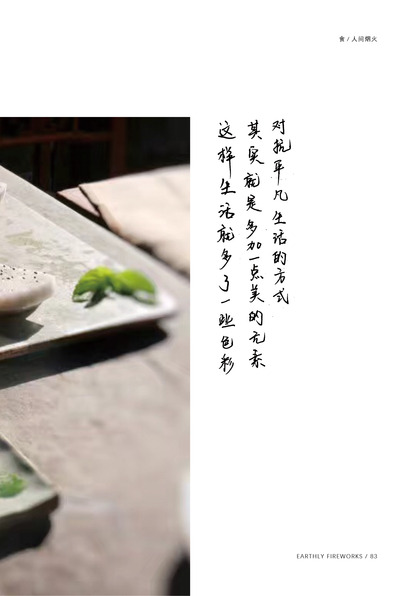 食 / 人间烟火
对抗平凡生活的方式
其实就是多加一点美的元素
这样生活就多了一些色彩
EARTHLY FIREWORKS / 83